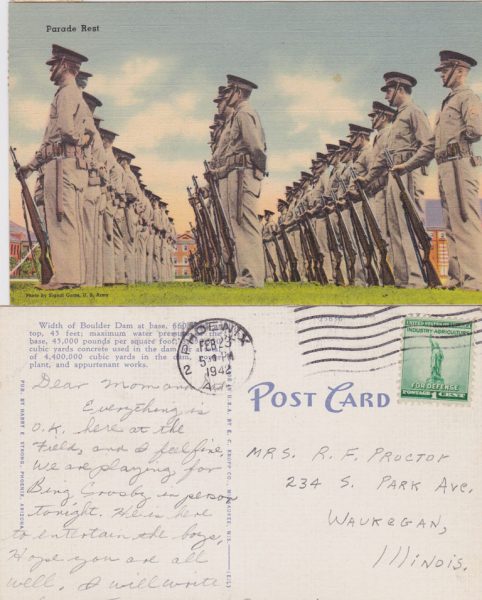 Parade Rest
Photo by Signal Corps, U. S. Army
Width of Boulder Dam at base, 660
top, 45 feet; maximum water pressure at the
base, 45,000 pounds per square foot;
cubic yards concrete used in the dam,
of 4,400,000 cubic yards in the dam,
plant, and appurtenant works.
PHOENIX
FEB 3
5 PM
1942
2
UNITED STATES
INDUSTRY AGRICULTURE
FOR DEFENSE
POSTAGE 1 CENT
POST CARD
PUB. BY HARRY E. STRONG, PHOENIX, ARIZONA
BY E. C. KROPP CO., MILWAUKEE, WIS.
Dear Mom and
Everything is
O.K. here at the
Field, and I feel fine.
We are playing for
Bing Crosby in person
tonight. He is here
to entertain the boys.
Hope you are all
well. I will write
MRS. R. F. PROCTOR
234 S. PARK AVE.
WAUKEGAN,
ILLINOIS.